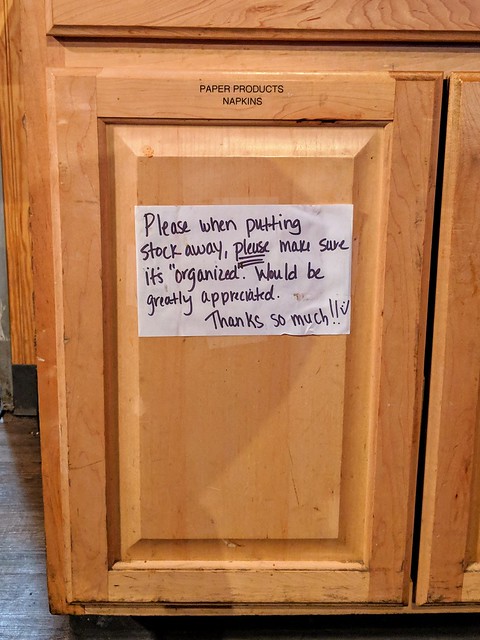 PAPER PRODUCTS
NAPKINS
Please when putting
stock away, please make sure
it's "organized". Would be
greatly appreciated.
Thanks so much!!